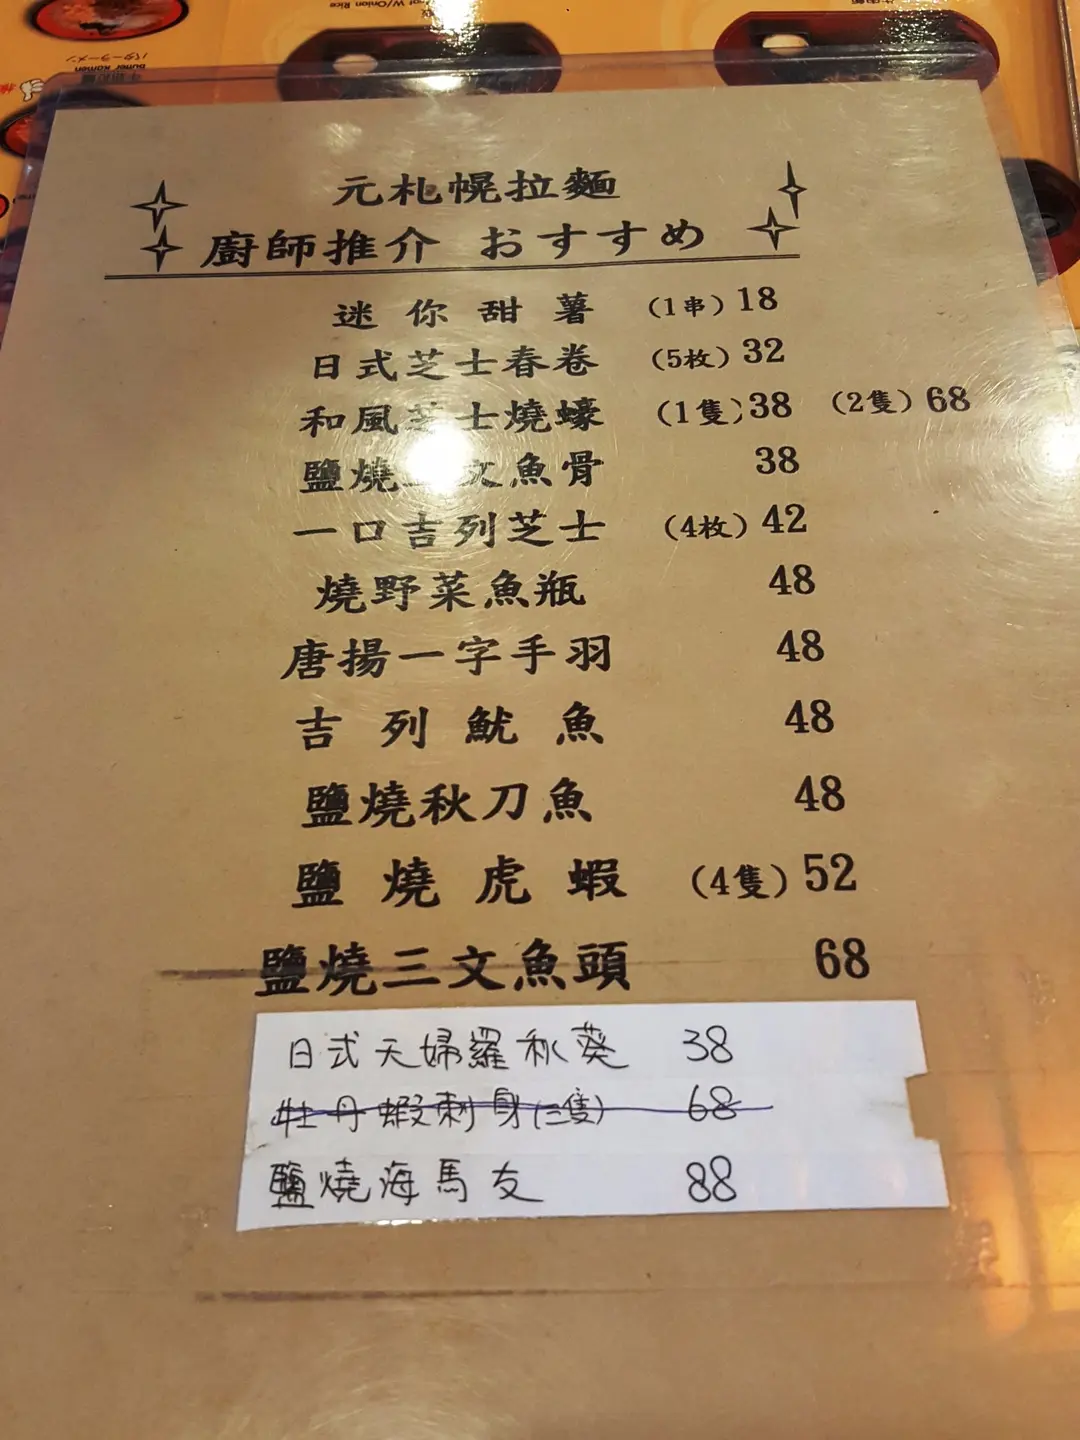 元札幌拉麵
廚師推介 おすすめ
迷你甜薯 (1串) 18
日式芝士春卷 (5枚) 32
和風芝士燒蠔 (1隻) 38 (2隻) 68
鹽燒三文魚骨 38
一口吉列芝士 (4枚) 42
燒野菜魚瓶 48
唐揚一字手羽 48
吉列魷魚 48
鹽燒秋刀魚 48
鹽燒虎蝦 (4隻) 52
鹽燒三文魚頭 68
日式天婦羅秋葵 38
牡丹蝦刺身(三隻) 68
鹽燒海馬友 88